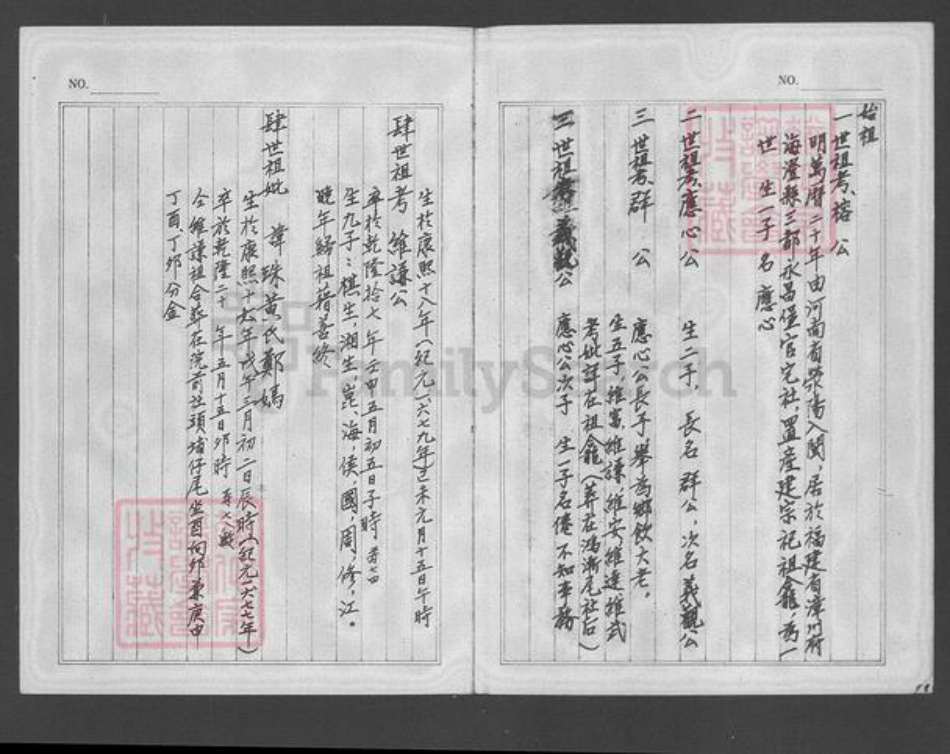 NO.
始祖
一世祖考 榕 公
明萬曆二十年由河南省滎陽入閩，居於福建省漳州府
海澄縣三都永昌堡官宅社，置產建宗祀祖龕，為一
世 生一子 名 應心
二世祖考應心公 生二子，長名群公，次名義觀公
三世祖考群 公 應心公長子舉為鄉飲大老。
生五子，維富，維謙，維安維達維式
考妣詳在祖龕（葬在鴻漸尾社后）
三世祖考義觀公 應心公次子 生一子名 不知事務
NO.
生於康熙十八年（紀元一六七九年）己未元月十五日午時
肆世祖考 維謙公
卒於乾隆拾七年壬申五月初五日子時 壽七四
生九子：棋生，湘生，崑，海，侯，國，周，修，江。
晚年歸祖籍善終
肆世祖妣 諱珠黃氏鄭媽
生於康熙十六年 三月初二日辰時（紀元一六七七年）
卒於乾隆二十 年五月十五日卯時 壽七八歲
仝維謙祖合葬在院前社頭 仔尾坐酉向卯兼庚甲
丁酉、丁卯分金
FamilySearch